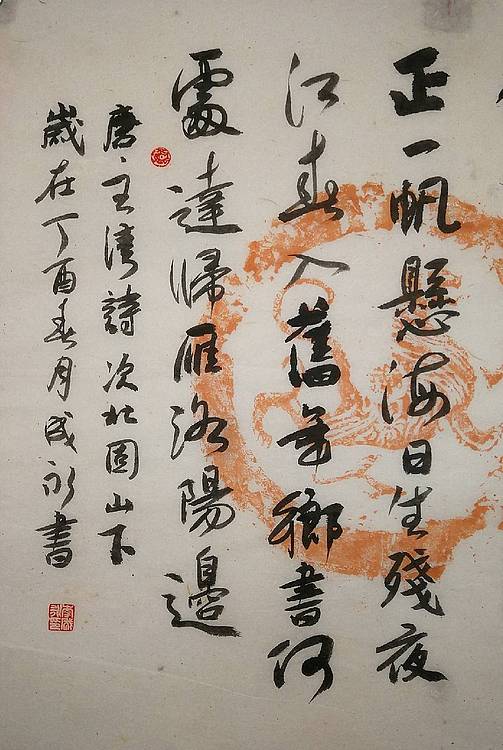 正一帆懸海日生殘夜
江春入舊年鄉書何
處達歸雁洛陽邊
唐王灣詩次北固山下
歲在丁酉春月成永書